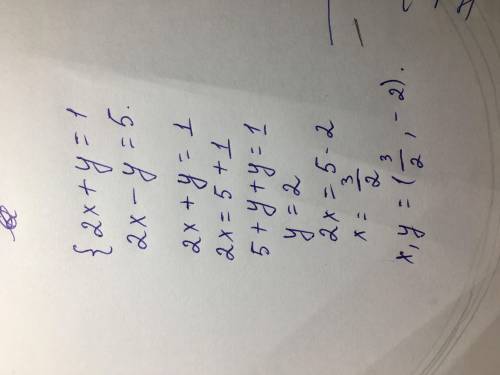 { 2x + y = 1
2x - y = 5.
2x + y = 1
2x = 5 + 1
5 + y + y = 1
y = 2
2x = 5 - 2
x = 3/2
x, y = (3/2, -2).